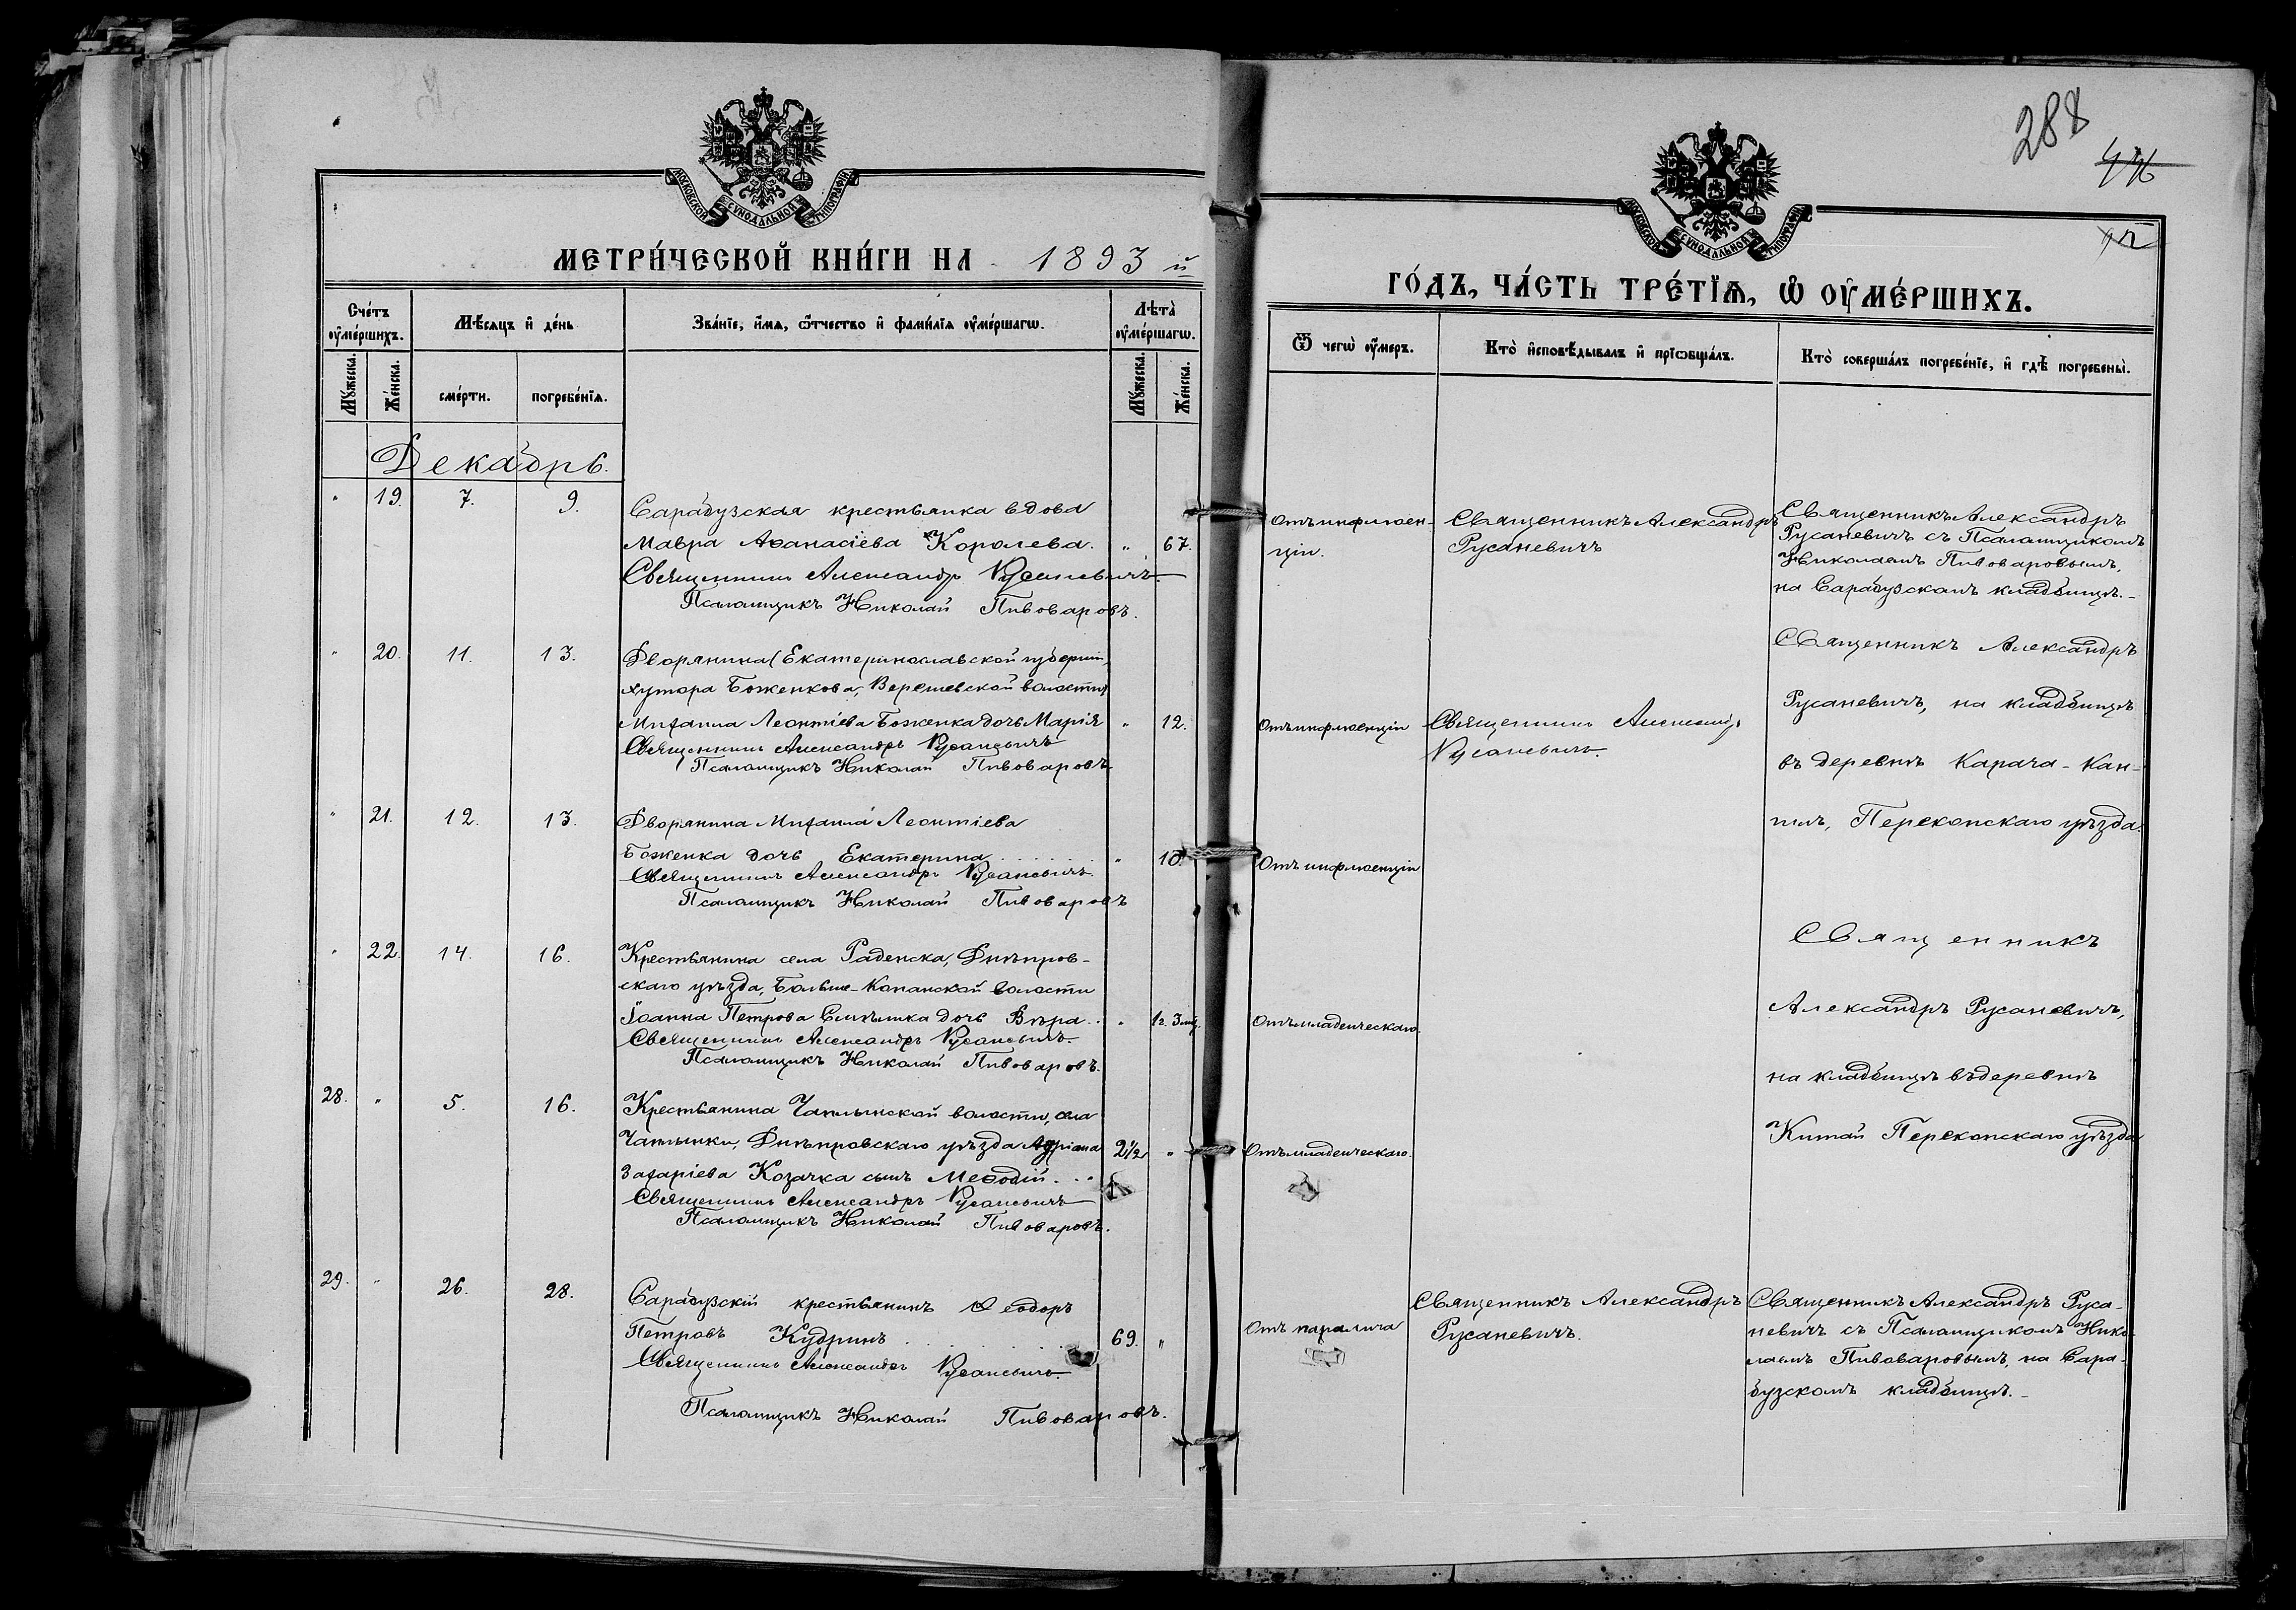 МОСКОВСКОЙ СѴНОДАЛЬНОЙ ТИПОГРАФІИ
МЕТРИ́ЧЕСКОЙ КНИ́ГИ НА 1893 й
Сче́тъ оу҆ме́ршихъ.
Мѣ́сяцъ и҆ де́нь
Зва́нїе, и҆́мя, ѻ҆́тчество и҆ фами́лїя оу҆ме́ршагѡ.
Лѣта̀ оу҆ме́ршагѡ.
Мꙋ́жеска.
Же́нска.
сме́рти.
погребе́нїя.
Мꙋ́жеска.
Же́нска.
Декабрь.
" 19. 7. 9.
Сарабузская крестьянка вдова
Мавра Аѳанасіева Королева. " 67.
Священникъ Александръ Русаневичъ
Псаломщикъ Николай Пивоваровъ.
" 20. 11. 13.
Дворянина (Екатеринославской губерніи,
хутора Боженкова, волости)
Михаила Леонтіева Боженка дочь Марія " 12.
Священникъ Александръ Русаневичъ
Псаломщикъ Николай Пивоваровъ
" 21. 12. 13.
Дворянина Михаила Леонтіева
Боженка дочь Екатерина " 10.
Священникъ Александръ Русаневичъ
Псаломщикъ Николай Пивоваровъ
" 22. 14. 16.
Крестьянина села Раденска, Днѣпров-
скаго уѣзда, Больше-Копанской волости
Іоанна Петрова дочь Вѣра.. " 1г. 3мц.
Священникъ Александръ Русаневичъ.
Псаломщикъ Николай Пивоваровъ.
28. " 5. 16.
Крестьянина Чаплынской волости, села
Чаплынки, Днѣпровскаго уѣзда Адріана 2½ "
Захаріева Козачка сынъ Меѳодій...
Священникъ Александръ Русаневичъ
Псаломщикъ Николай Пивоваровъ.
29. " 26. 28.
Сарабузскій крестьянинъ Ѳеодоръ
Петровъ Кудринъ 69. "
Священникъ Александръ Русаневичъ.
Псаломщикъ Николай Пивоваровъ.
288
МОСКОВСКОЙ СѴНОДАЛЬНОЙ ТИПОГРАФІИ
ГО́ДЪ, ЧА́СТЬ ТРЕ́ТЇѦ, Ѡ҆ ОУ҆МЕ́РШИХЪ.
Ѿ чегѡ̀ оу҆́меръ.
Кто̀ и҆сповѣ́дывалъ и҆ прїѡбща́лъ.
Кто̀ соверша́лъ погребе́нїе, и҆ гдѣ̀ погребены̀.
Отъ инфлюен-
ціи.
Священникъ Александръ
Русаневичъ
Священникъ Александръ
Русаневичъ съ Псаломщикомъ
Николаемъ Пивоваровымъ,
на Сарабузскомъ кладбищѣ.-
Отъ инфлюенціи
Священникъ Александръ
Русаневичъ.
Священникъ Александръ
Русаневичъ, на кладбищѣ
въ деревнѣ Карача-Кан-
Перекопскаго уѣзда.
Отъ инфлюенціи
Отъ младенческаго.
Отъ младенческаго.
Священникъ
Александръ Русаневичъ,
на кладбищѣ въ деревнѣ
Китай Перекопскаго уѣзда
Отъ паралича
Священникъ Александръ
Русаневичъ.
Священникъ Александръ Руса-
невичъ съ Псаломщикомъ Нико-
лаемъ Пивоваровымъ, на Сара-
бузскомъ кладбищѣ.-